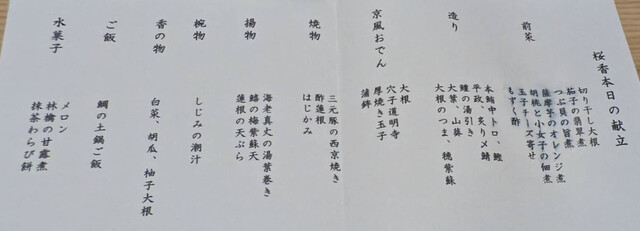 桜香本日の献立
前菜
切り干し大根
茄子の翡翠煮
つぶ貝の旨煮
薩摩芋のオレンジ煮
胡桃と小女子の佃煮
玉子チーズ寄せ
もずく酢
造り
本鮪中トロ、鰹
平政、炙り〆鯖
鱧の湯引き
大葉、山葵
大根のつま、穂紫蘇
京風おでん
大根
穴子道明寺
厚焼き玉子
蒲鉾
焼物
三元豚の西京焼き
酢蓮根
はじかみ
揚物
海老真丈の湯葉巻き
鱚の梅紫蘇天
蓮根の天ぷら
椀物
しじみの潮汁
香の物
白菜、胡瓜、柚子大根
ご飯
鯛の土鍋ご飯
水菓子
メロン
林檎の甘露煮
抹茶わらび餅